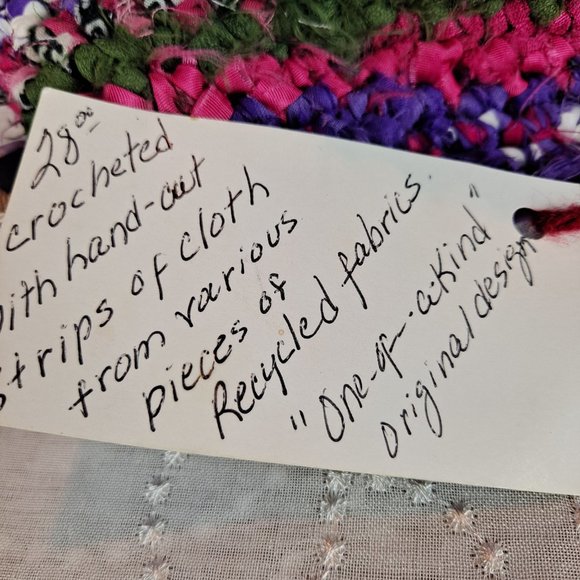 28.00
crocheted
with hand-cut
strips of cloth
from various
pieces of
Recycled fabrics.
"One-of-a-Kind"
original design